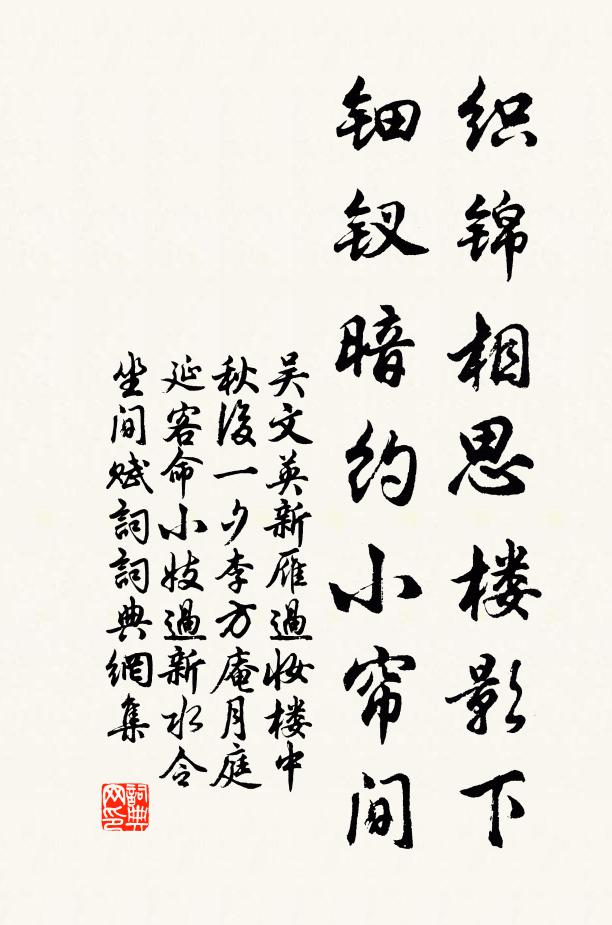 织锦相思楼影下
钿钗暗约小帘间
吴文英新雁過妆楼中
秋後一夕李方庵月庭
延客命小妓過新水令
坐间赋詞詞典網集
詞典
网印